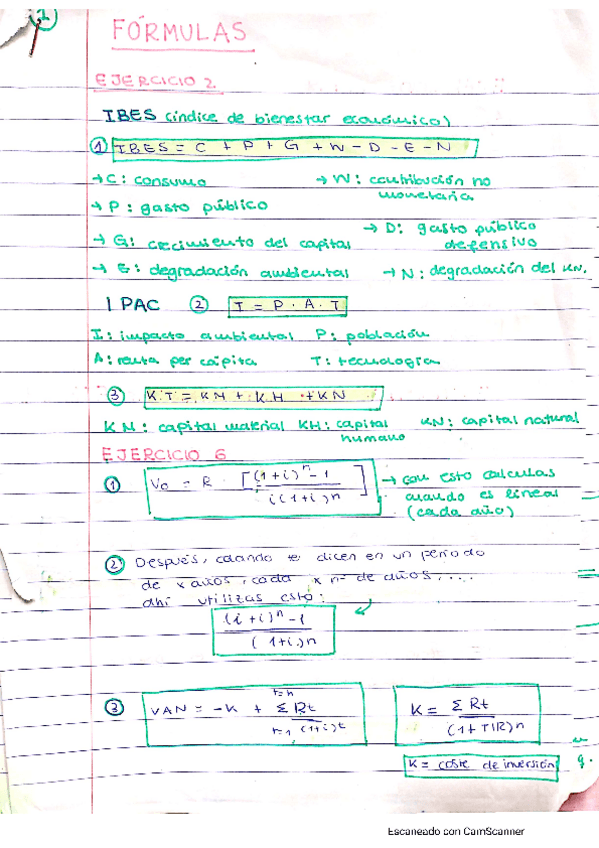 1
FÓRMULAS
EJERCICIO 2
IBES (índice de bienestar económico)
① IBES = C + P + G + W - D - E - N
→ C: consumo → W: contribución no monetaria
→ P: gasto público
→ D: gasto público defensivo
→ G: crecimiento del capital
→ E: degradación ambiental → N: degradación del KN.
IPAC ② I = P · A · T
I: impacto ambiental P: población
A: renta per cápita T: tecnología
③ K.T = KM + K.H + KN
KM: capital material KH: capital humano KN: capital natural
EJERCICIO 6
① Vo = R · [(1+i)^n - 1 / i(1+i)n] → con esto calculas cuando es lineal (cada año)
② Después, cuando te dicen en un periodo
de x años, cada x nº de años, ...
ahí utilizas esto:
(i+i)^n - 1 / (1+i)n
③ VAN = -K + Σ Rt / (1+i)t t=n t=1
K = Σ Rt / (1+TIR)n
K = coste de inversión
Escaneado con CamScanner